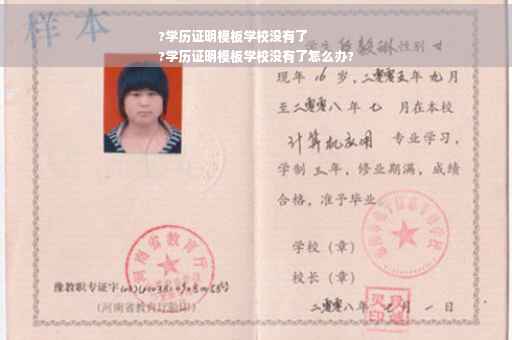 样本
?学历证明模板学校没有了
?学历证明模板学校没有了怎么办?
性别 女
现年 16 岁,二零零五年 九月
至二零零八年 七 月在本校
计算机应用 专业学习,
学制 三 年,修业期满,成绩
合格,准予毕业
学校(章)
校长(章)
二零零八年 七 月 一 日
河南省教育厅
豫教职专证字
(河南省教育厅验印)